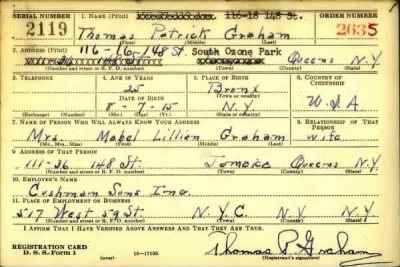 SERIAL NUMBER 1. NAME (Print) 116-18 148 St. ORDER NUMBER
2119 Thomas Patrick Graham 2635
(First) (Middle) (Last)
2. ADDRESS (Print) 116-16-148 St. South Ozone Park
111-36 148 St. Queens N.Y.
(Number and street or R. F. D. number) (Town) (County) (State)
3. TELEPHONE 4. AGE IN YEARS 5. PLACE OF BIRTH 6. COUNTRY OF CITIZENSHIP
25 Bronx
DATE OF BIRTH (Town or county)
8-7-15 N.Y. U.S.A
(Exchange) (Number) (Mo.) (Day) (Yr.) (State or country)
7. NAME OF PERSON WHO WILL ALWAYS KNOW YOUR ADDRESS 8. RELATIONSHIP OF THAT PERSON
Mrs. Mabel Lillian Graham wife
(Mr., Mrs., Miss) (First) (Middle) (Last)
9. ADDRESS OF THAT PERSON
111-36 148 St. Queens N.Y.
(Number and street or R. F. D. number) (Town) (County) (State)
10. EMPLOYER'S NAME
Cushman Sons Inc.
11. PLACE OF EMPLOYMENT OR BUSINESS
517 West 59 St. N.Y.C. N.Y. N.Y.
(Number and street or R. F. D. number) (Town) (County) (State)
I AFFIRM THAT I HAVE VERIFIED ABOVE ANSWERS AND THAT THEY ARE TRUE.
REGISTRATION CARD Thomas P. Graham
D. S. S. Form 1 (over) 16-17105 (Registrant's signature)